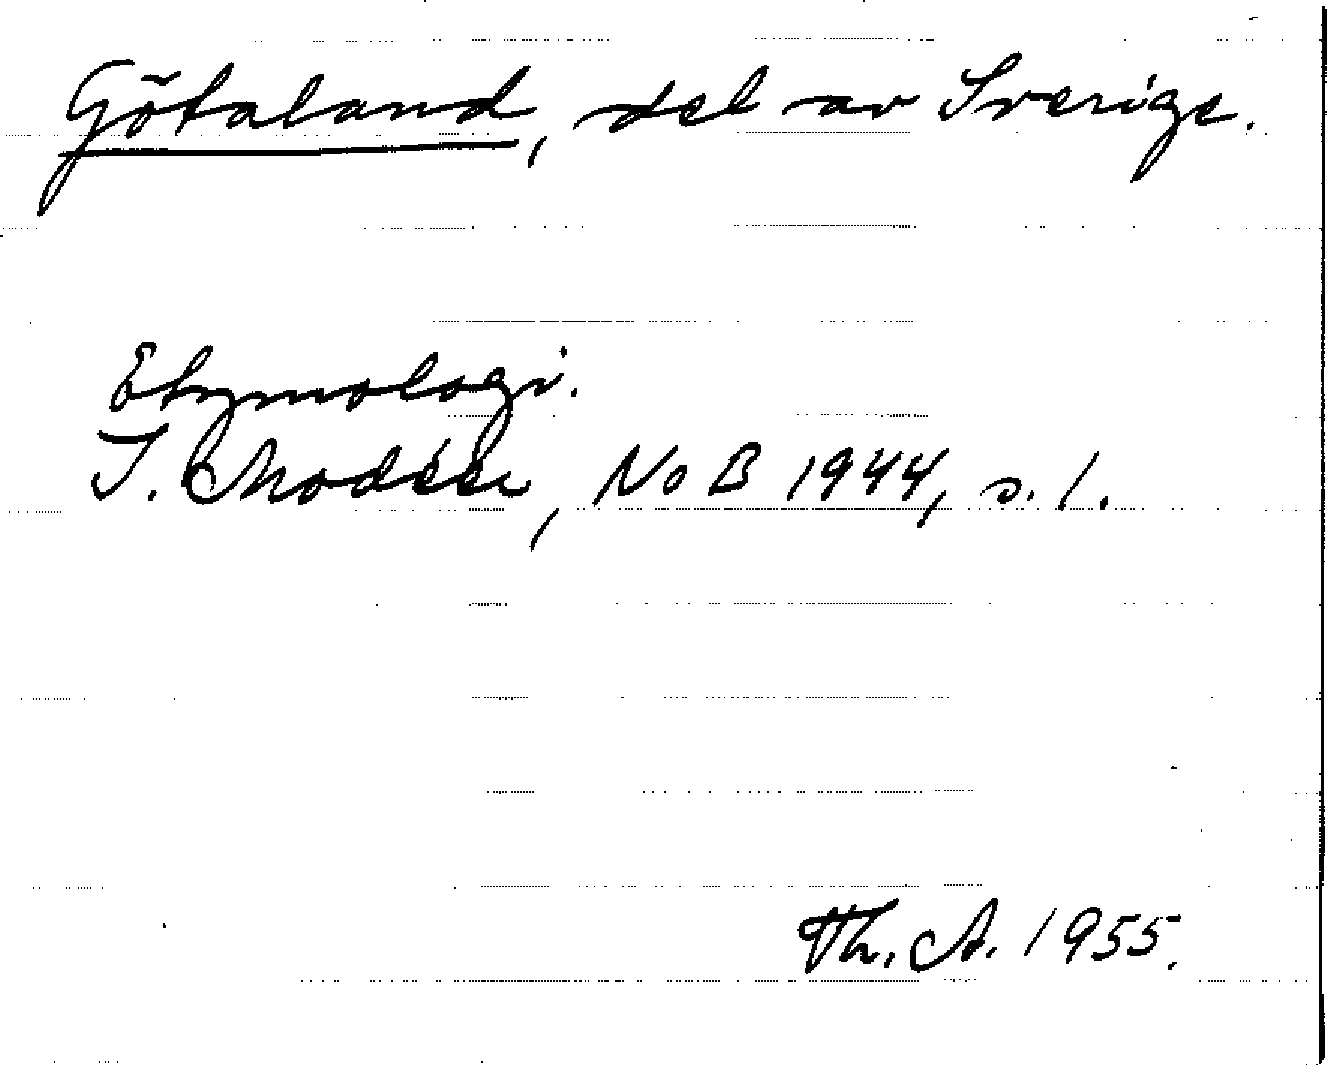 Götaland, del av Sverige.
Etymologi.
I. Modéer, NoB 1944, s. 1.
Th. A. 1955.